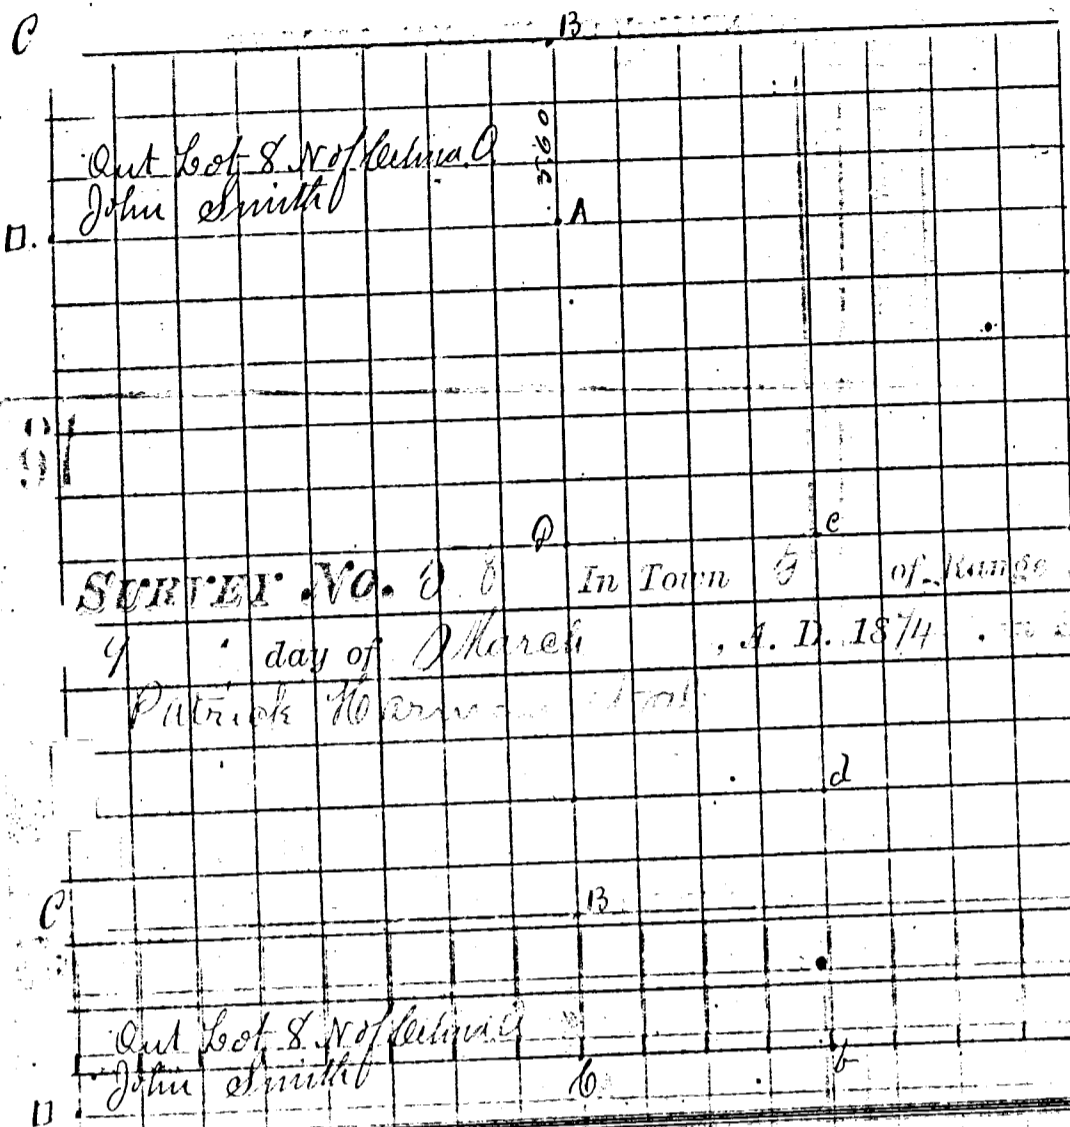 C
B
3.60
Out Lot 8 N of Celina O
John Smith
A
D.
D
c
SURVEY No. In Town of Range
9 day of March , A. D. 1874
Patrick
d
C
B
Out Lot 8 N of Celina O
John Smith
b
D